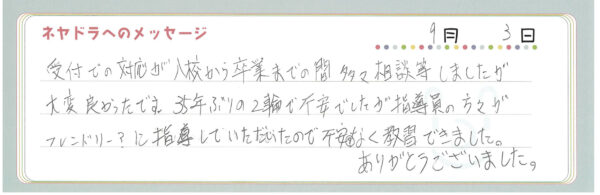 ネヤドラへのメッセージ
9月 3日
受付での対応が入校から卒業までの間多々相談等しましたが
大変良かったです。35年ぶりの2輪で不安でしたが指導員の方々が
フレンドリー?に指導していただいたので不安なく教習できました。
ありがとうございました。